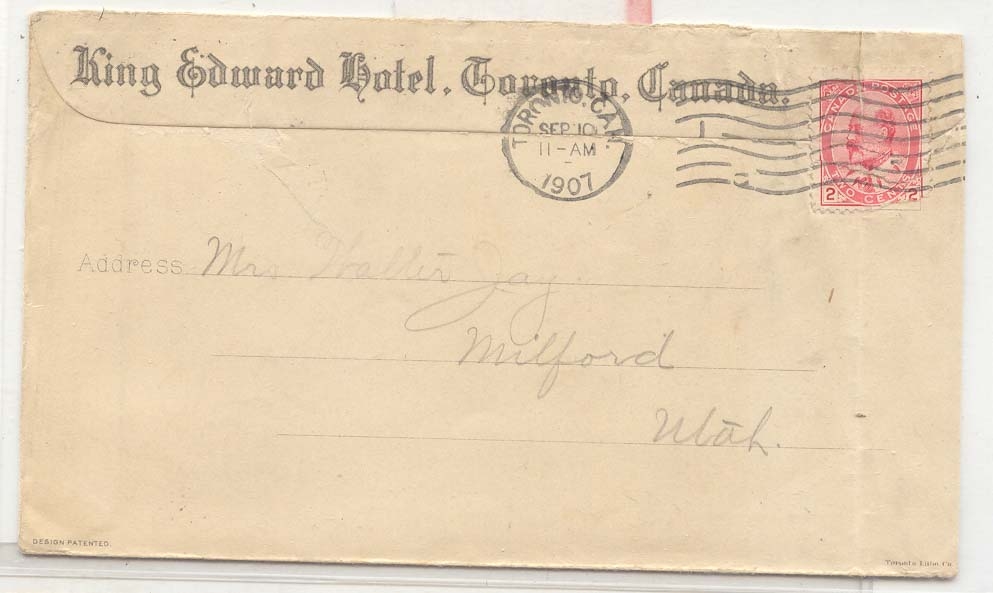 King Edward Hotel, Toronto, Canada.
TORONTO, CAN.
SEP 10
11-AM
1907
CANADA POSTAGE
TWO CENTS
2 2
Address Mrs Walter Jay.
Milford
Utah.
DESIGN PATENTED.
Toronto Litho. Co.